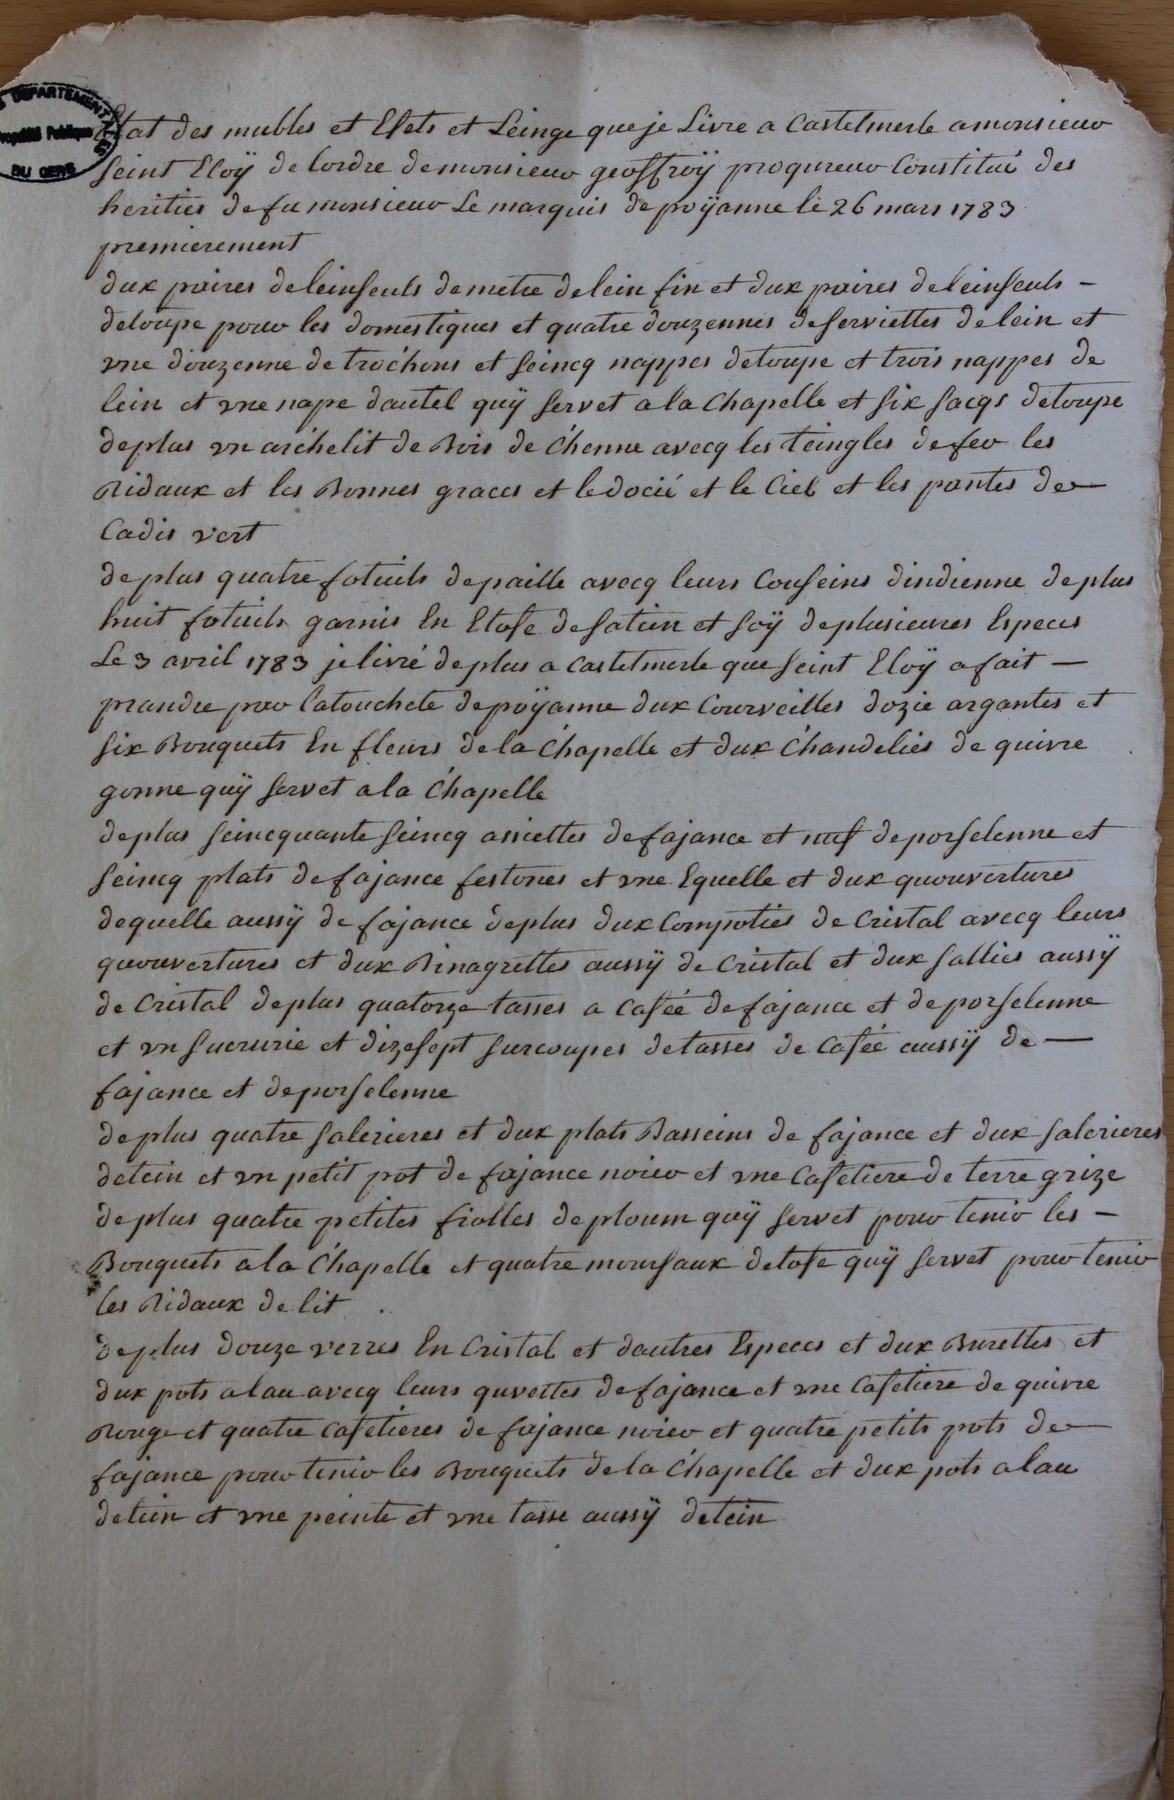 DEPARTEMENTALES
Propriété Publique
DU GERS
Etat des mubles et Efets et Leinge que je Livre a Castelmerle a monsieur
seint Eloÿ de lordre de monsieur geoffroÿ proqureur Constitué des
heritiers de fu monsieur Le marquis de poÿanne le 26 mars 1783
premierement
dux paires de leinseuls de metre de lein fin et dux paires de leinseuls –
detoupe pour les domestiques et quatre douzennes de serviettes de lein et
vne douzenne de trochons et seincq nappes detoupe et trois nappes de
lein et vne nape dautel quÿ servet a la Chapelle et six sacqs detoupe
deplus vn archelit de Bois de Chenne avecq les teingles de fer les
Ridaux et les Bonnes graces et le docié et le Ciel et les pantes de –
Cadis vert
deplus quatre fotuils depaille avecq leurs Couseins dindienne deplus
huit fotuils garnis En Etofe de satein et soÿ de plusieures Especes
Le 3 avril 1783 je livré deplus a Castelmerle que seint Eloÿ a fait –
prandre pour latouchete de poÿanne dux Courveilles dozie argantes et
six Bouquets En fleurs de la Chapelle et dux Chandelies de quivre
gonne quÿ servet a la Chapelle
deplus seincquante seincq assiettes de fajance et nuf deporselenne et
seincq plats de fajance festones et vne Equelle et dux quouvertures
dequelle aussÿ de fajance deplus dux Compoties de Cristal avecq leurs
quouvertures et dux Binagrettes aussÿ de Cristal et dux sallies aussÿ
de Cristal deplus quatorze tasses a Cafée de fajance et deporselenne
et vn sucrurie et dizesept surcoupes detasses de Cafée aussÿ de –
fajance et deporselenne
deplus quatre salerieres et dux plats Basseins de fajance et dux salerieres
detein et vn petit pot de fajance noire et vne Cafetiere de terre grize
deplus quatre petites fiolles de ploum quÿ servet pour tenir les –
Bouquets a la Chapelle et quatre moursaux detofe quÿ servet pour tenir
les Ridaux de lit
deplus douze verres En Cristal et dautres Especes et dux Burettes et
dux pots a lau avecq leurs quvettes de fajance et vne Cafetiere de quivre
Rouge et quatre Cafetieres de fajance noire et quatre petits pots de –
fajance pour tenir les Bouquets de la Chapelle et dux pots a lau
detein et vne peinte et vne tasse aussÿ detein